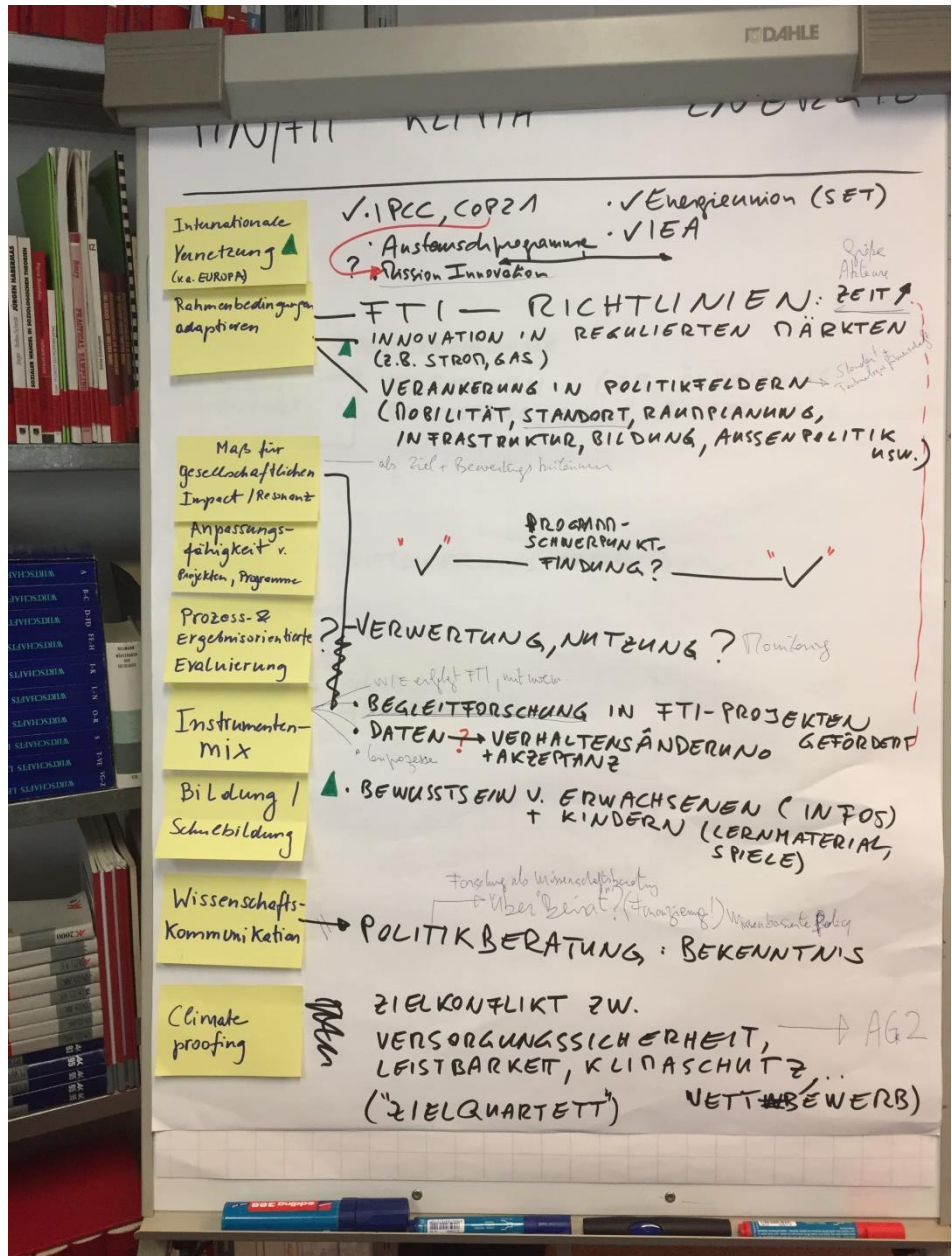 DAHLE
KLIMA ENERGIE
Internationale
Vernetzung
(v.a. EUROPA)
✓ · IPCC, COP21
· ✓ Energieunion (SET)
· Austauschprogramme
· ✓ IEA
? Mission Innovation
Größe
Akteure
Rahmenbedingungen
adaptieren
FTI — RICHTLINIEN: ZEIT ↑
INNOVATION IN REGULIERTEN MÄRKTEN
(z.B. STROM, GAS)
VERANKERUNG IN POLITIKFELDERN
(MOBILITÄT, STANDORT, RAUMPLANUNG,
INFRASTRUKTUR, BILDUNG, AUSSENPOLITIK
usw.)
Maß für
gesellschaftlichen
Impact / Resonanz
als Ziel + Bewertungskriterium
Anpassungs-
fähigkeit v.
Projekten, Programme
PROGRAMM-
SCHWERPUNKT-
FINDUNG?
Prozess- &
Ergebnisorientierte
Evaluierung
? VERWERTUNG, NUTZUNG ? Monitoring
WIE erfolgt FTI, mit wem
Instrumenten-
mix
· BEGLEITFORSCHUNG IN FTI-PROJEKTEN
GEFÖRDERT
· DATEN ? → VERHALTENSÄNDERUNG
+ AKZEPTANZ
Bildung /
Schulbildung
· BEWUSSTSEIN V. ERWACHSENEN (INFOS)
+ KINDERN (LERNMATERIAL,
SPIELE)
Wissenschafts-
kommunikation
Über "Beirat"? (Finanzierung!)
→ POLITIKBERATUNG : BEKENNTNIS
Climate
proofing
ZIELKONFLIKT ZW.
VERSORGUNGSSICHERHEIT,
→ AG2
LEISTBARKEIT, KLIMASCHUTZ, ..
("ZIELQUARTETT")
WETTBEWERB)
JÜRGEN HABERMAS
WIRTSCHAFTS
AK 2000
edding